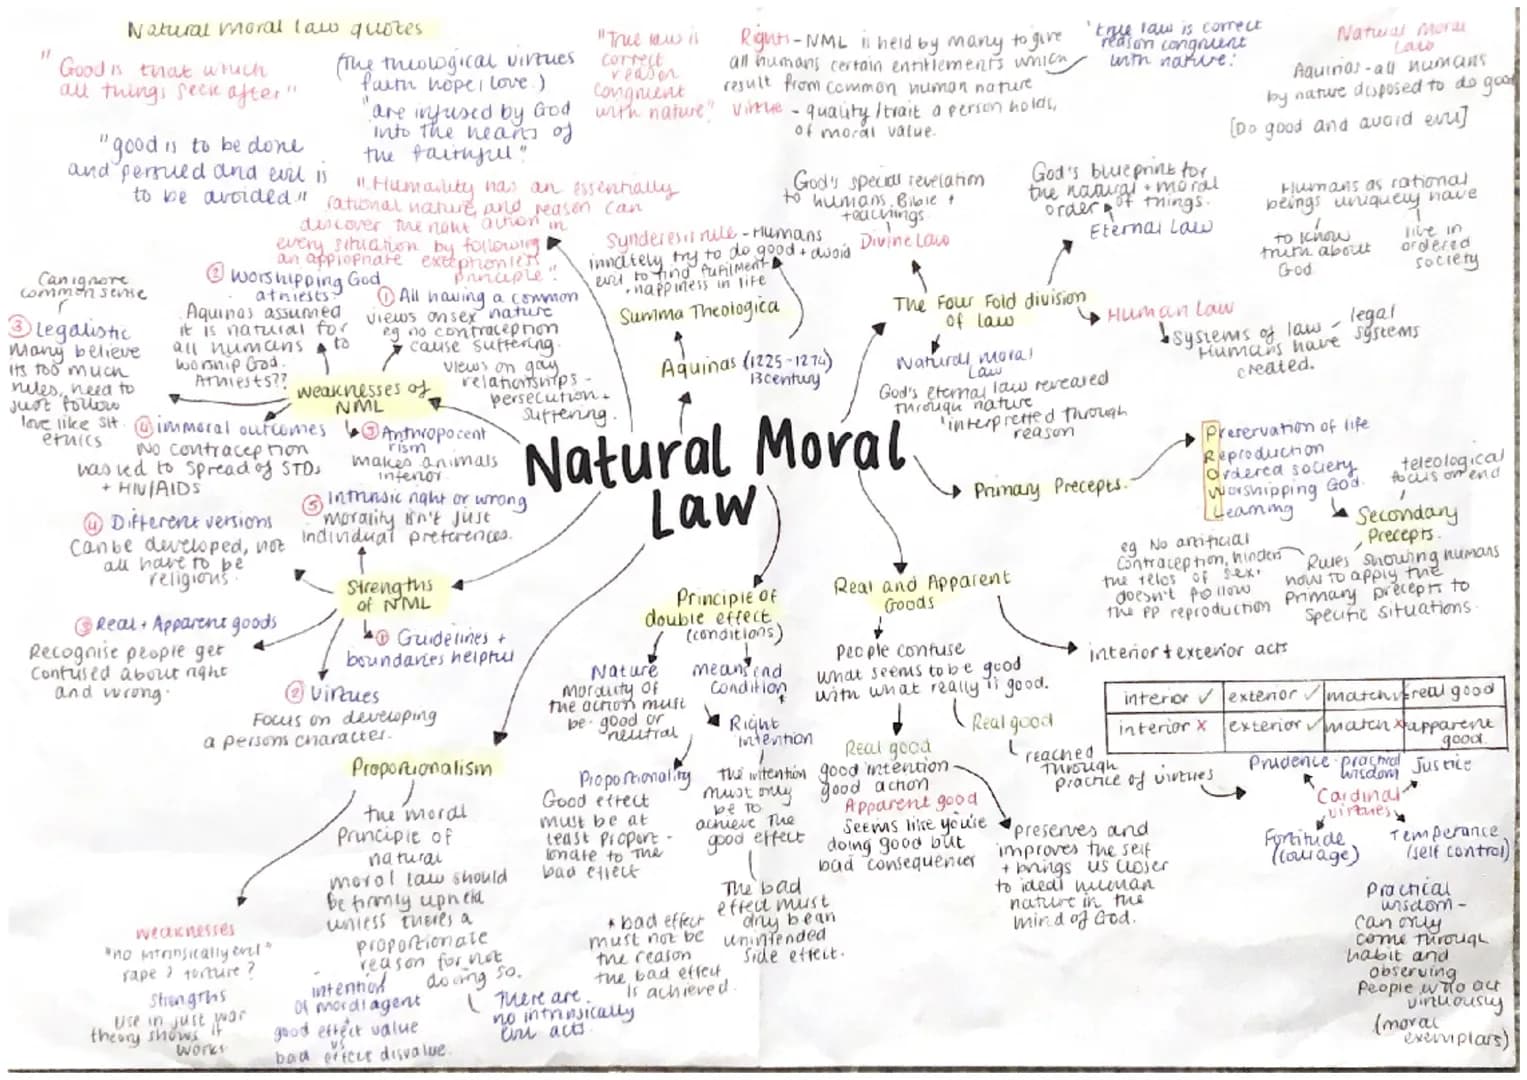 Natural moral law quotes
"Good is that which
all things seek after"
"good is to be done
and persued and evil is
to be avoided"
(The theological virtues
faith hope, love.)
"are infused by God
into the hearts of
the faithful"
"True law is
correct
reason
congruent
with nature"
Rights - NML is held by many to give
all humans certain entitlements which
result from common human nature
Virtue - quality/trait a person holds,
of moral value.
'true law is correct
reason congruent
with nature'
Natural Moral
Law
Aquinas - all humans
by nature disposed to do good
[Do good and avoid evil]
"Humanity has an essentially
rational nature, and reason can
discover the right action in
every situation by following
an appropriate exceptionless
principle"
Synderesis rule - Humans
innately try to do good + avoid
evil to find fufilment
+ happiness in life
Summa Theologica
Aquinas (1225-1274)
13century
God's special revelation
to humans, Bible +
teachings
Divine Law
God's blueprint for
the natural + moral
order of things.
Eternal Law
Humans as rational
beings uniquely have
to know
truth about
God
live in
ordered
society
The Four Fold division
of law
Human Law
Systems of law - legal
Humans have systems
created.
Natural moral
Law
God's eternal law revealed
through nature
interpretted through
reason
Can ignore
common sense
③ Legalistic
Many believe
its too much
rules, need to
just follow
love like sit.
ethics
② Worshipping God
athiests
Aquinas assumed
it is natural for
all humans to
worship God.
Athiests??
① All having a common
nature
views on sex
eg no contraception
cause suffering.
views on gay
relationships -
persecution +
suffering.
Weaknesses of
NML
④ immoral outcomes
No contraception
was led to spread of STDs
+ HIV/AIDs
⑤ Anthropocent
rism
makes animals
inferior
Natural Moral
Law
Primary Precepts.
Preservation of life
Reproduction
Ordered society
Worshipping God.
Learning
teleological
focus on end
Secondary
Precepts.
Rules showing humans
how to apply the
Primary precepts to
specific situations.
eg No artificial
contraception, hinders
the telos of sex.
doesn't follow
the PP reproduction
⑤ Intrinsic right or wrong
morality isn't just
individual preferences.
④ Different versions
Can be developed, not
all have to be
religious.
Strengths
of NML
③ Real + Apparent goods
Recognise people get
confused about right
and wrong.
① Guidelines +
boundaries helpful
② Virtues
Focus on developing
a persons character.
Principle of
double effect
(conditions)
Nature
morality of
the action must
be good or
neutral
means end
condition
*
Right
intention
The intention
must only
be to
achieve the
good effect
The bad
effect must
only be an
unintended
side effect.
Proportionality
Good effect
must be at
least proport-
ionate to the
bad effect
* bad effect
must not be
the reason
the bad effect
is achieved.
Real and Apparent
Goods
People confuse
what seems to be good
with what really is good.
Real good
good intention
good action
Apparent good
Seems like you're
doing good but
bad consequences
Real good
reached
through
practice of virtues
preserves and
improves the self
+ brings us closer
to ideal human
nature in the
mind of God.
interior + exterior acts
interior ✓ exterior ✓ match ✓ real good
interior × exterior ✓ match × apparent
good.
Prudence - practical
wisdom
Justice
Cardinal
virtues
Fortitude
(courage)
Temperance
(self control)
Practical
wisdom -
can only
come through
habit and
observing
people who act
virtuously
(moral
exemplars)
Proportionalism
the moral
Principle of
natural
moral law should
be firmly upheld
unless theres a
proportionate
reason for not
doing so.
There are
no intrinsically
evil acts.
intention
of moral agent
+
good effect value
vs
bad effect disvalue.
weaknesses
"no intrinsically evil"
rape? torture?
Strengths
use in just war
theory shows it
works